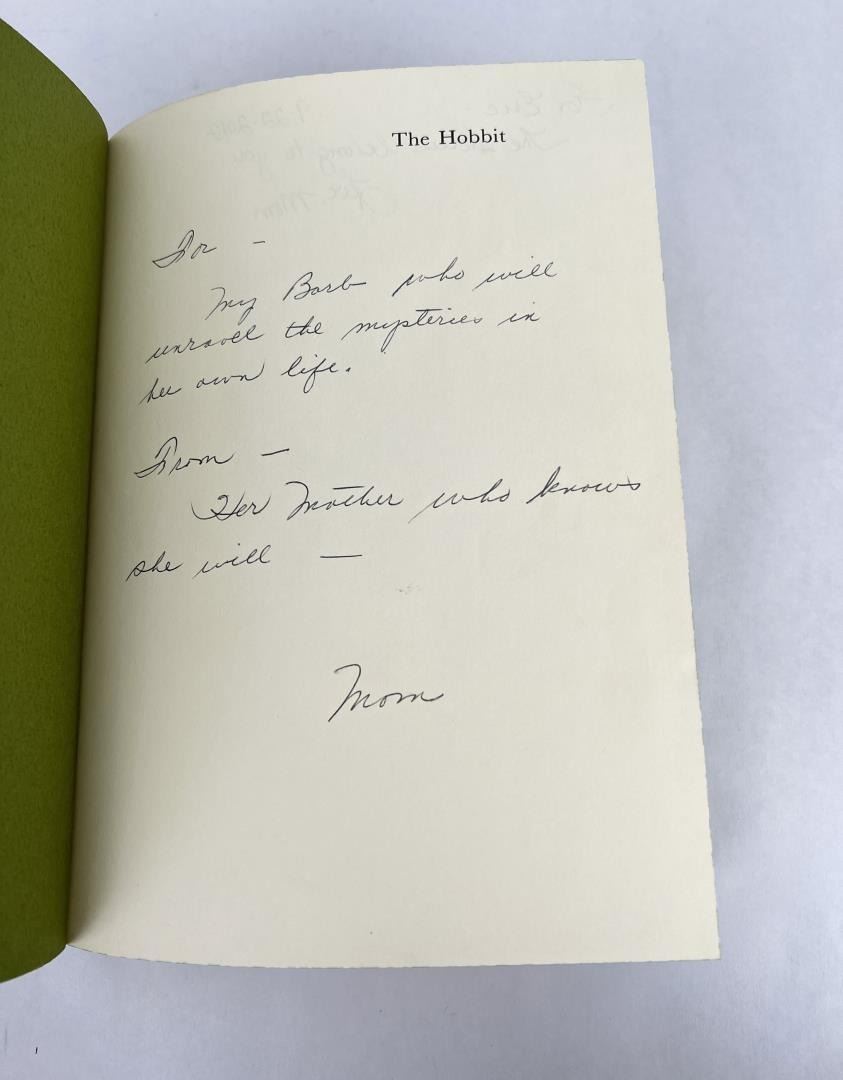 The Hobbit
For -
My Barb who will
unravel the mysteries in
her own life.
From -
Her Mother who knows
she will —
Mom